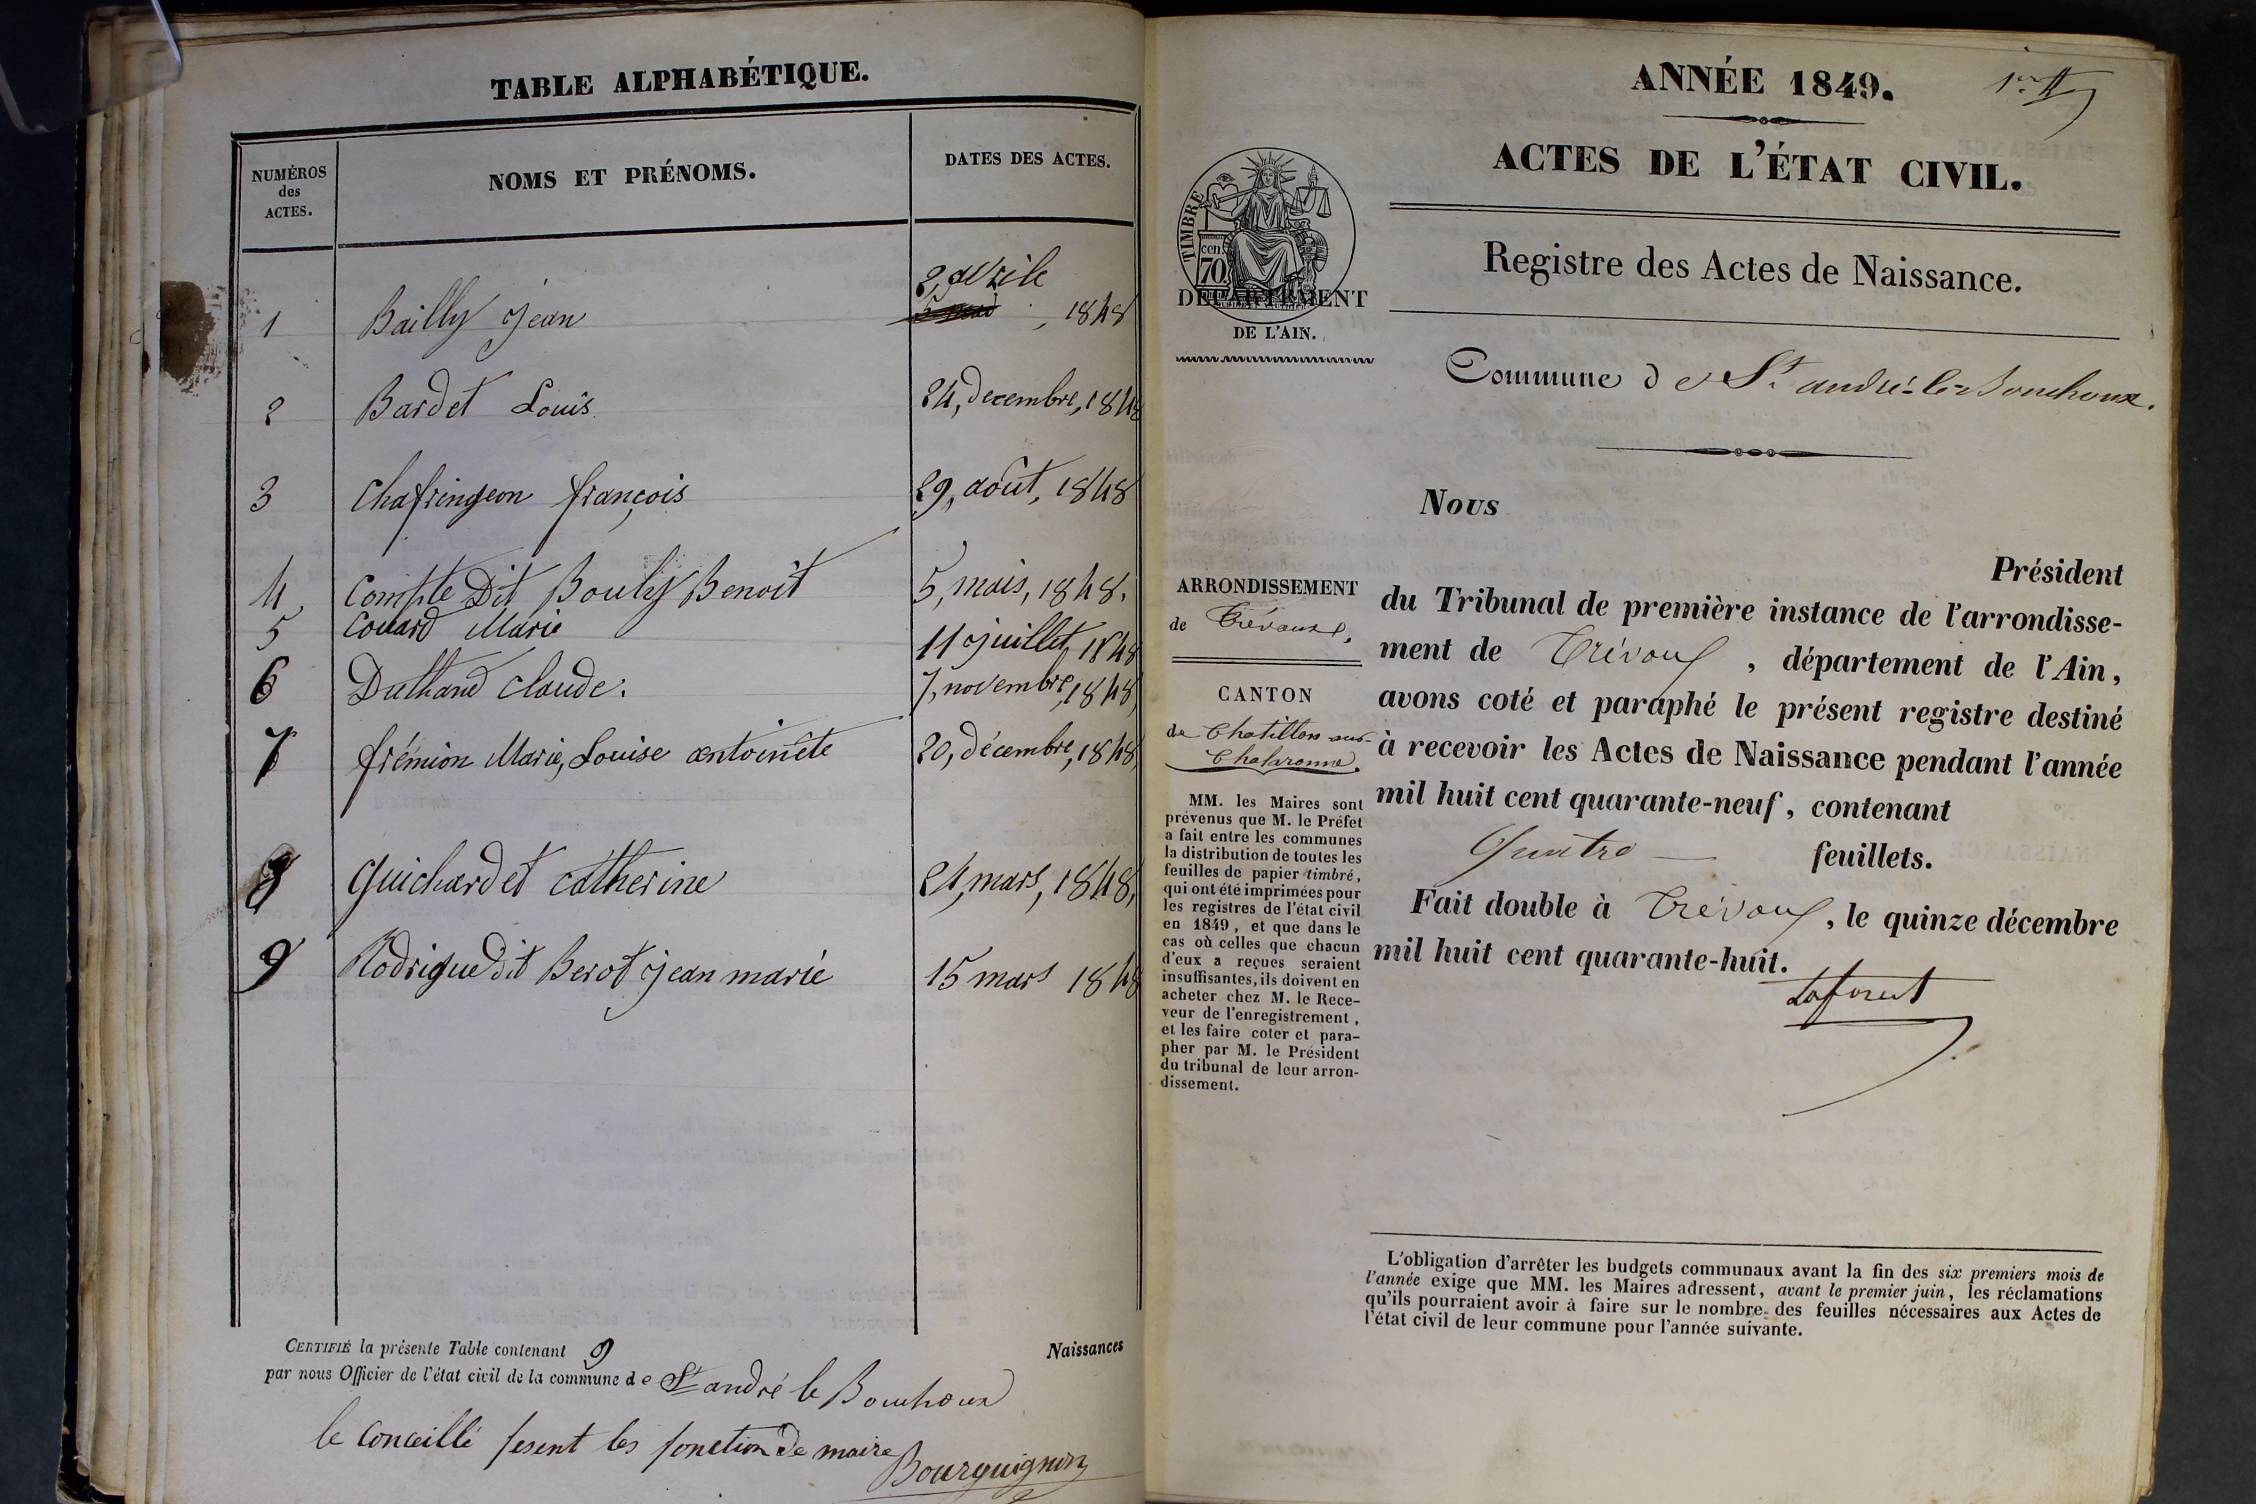 TABLE ALPHABÉTIQUE.
NUMÉROS
des
ACTES.
NOMS ET PRÉNOMS.
DATES DES ACTES.
1 Bailly jean 2, avrile 1848
2 Bardet Louis 24, decembre, 1848
3 Chafringeon françois 29, août, 1848
4 Compte Dit Bouly Benoît 5, mais, 1848.
5 Couard Marie 11 juillet, 1848
6 Duthand claude. 7, novembre, 1848,
7 frémion Marie, Louise antoinete 20, décembre, 1848,
8 Guichardet catherine 21, mars, 1848,
9 Rodrigue dit Berot jean marie 15 mars 1848
CERTIFIÉ la présente Table contenant 9 Naissances
par nous Officier de l'état civil de la commune de St andré le Bouchoux
le conceillé fesent les fonction de maire
Bourguignon
ANNÉE 1849.
ACTES DE L'ÉTAT CIVIL.
Registre des Actes de Naissance.
TIMBRE
cen
70
DÉPARTEMENT
DE L'AIN.
Commune de St. andré-le-Bouchoux.
Nous
Président
du Tribunal de première instance de l'arrondisse-
ment de Trévoux, département de l'Ain,
avons coté et paraphé le présent registre destiné
à recevoir les Actes de Naissance pendant l'année
mil huit cent quarante-neuf, contenant
Quatre feuillets.
Fait double à Trévoux, le quinze décembre
mil huit cent quarante-huit.
ARRONDISSEMENT
de Trévoux.
CANTON
de Chatillon sur-
Chalaronne.
MM. les Maires sont
prévenus que M. le Préfet
a fait entre les communes
la distribution de toutes les
feuilles de papier timbré,
qui ont été imprimées pour
les registres de l'état civil
en 1849, et que dans le
cas où celles que chacun
d'eux a reçues seraient
insuffisantes, ils doivent en
acheter chez M. le Rece-
veur de l'enregistrement,
et les faire coter et para-
pher par M. le Président
du tribunal de leur arron-
dissement.
L'obligation d'arrêter les budgets communaux avant la fin des six premiers mois de
l'année exige que MM. les Maires adressent, avant le premier juin, les réclamations
qu'ils pourraient avoir à faire sur le nombre des feuilles nécessaires aux Actes de
l'état civil de leur commune pour l'année suivante.